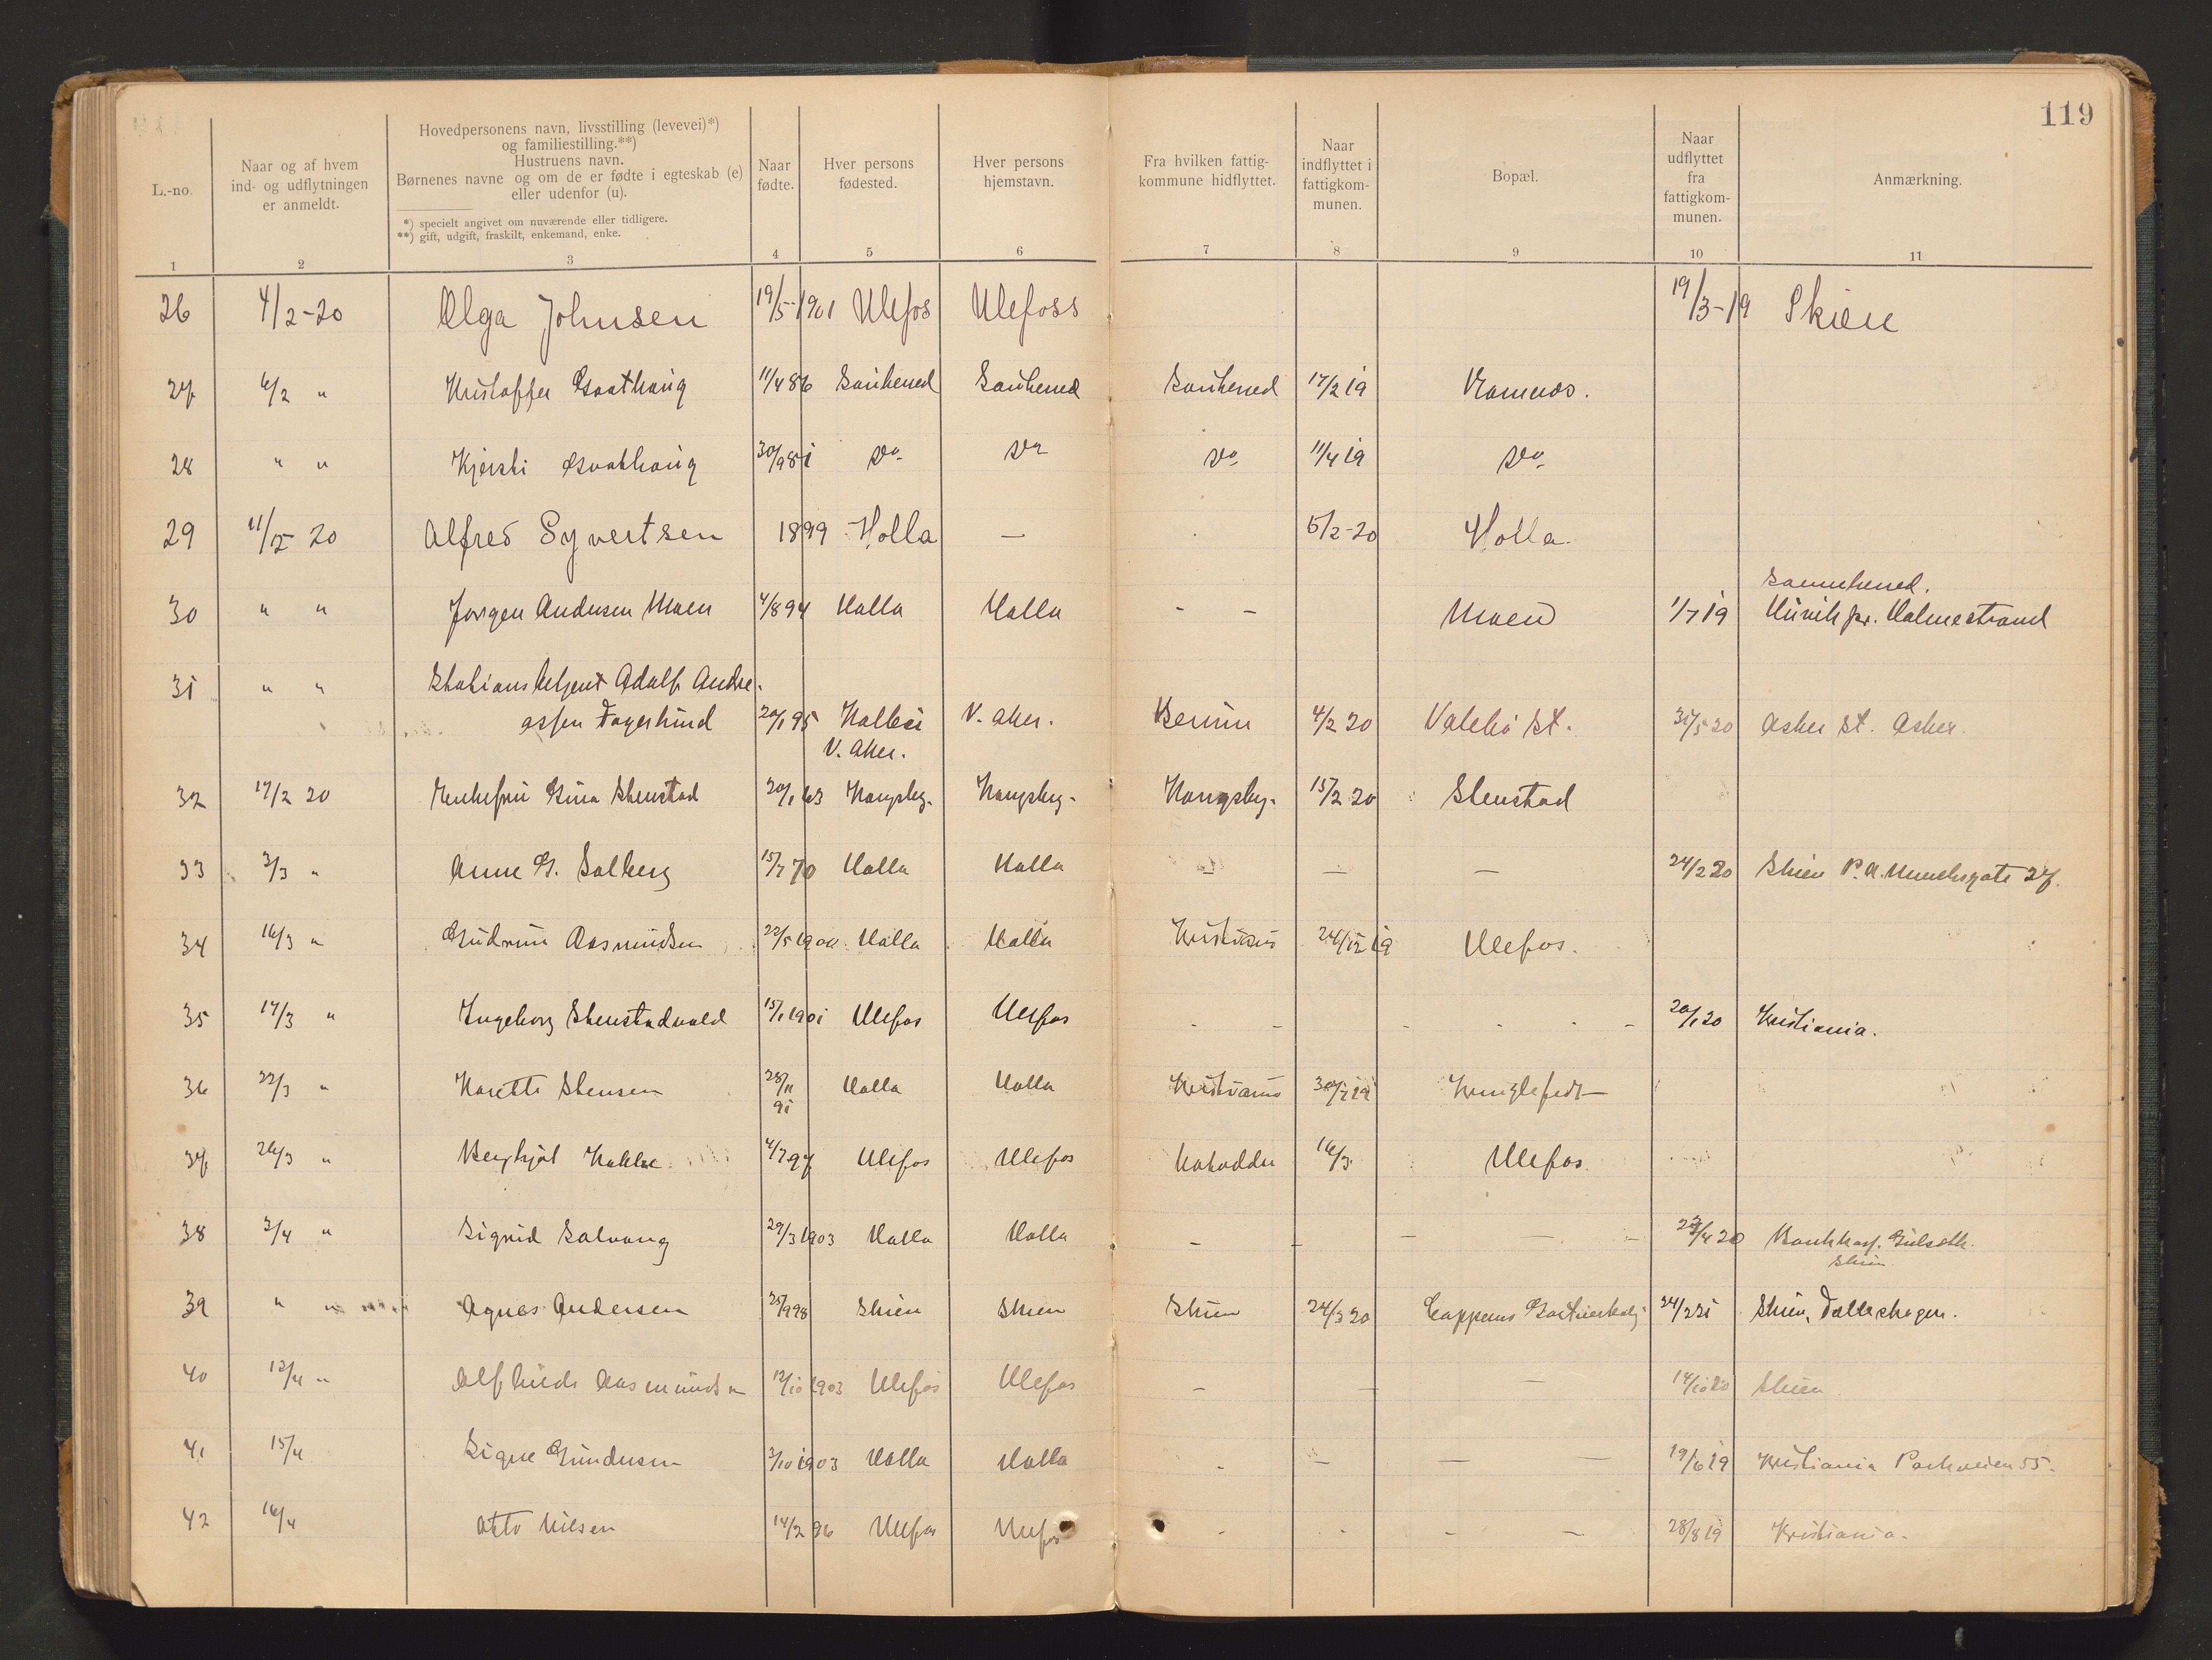 119
L.-no. Naar og af hvem ind- og udflytningen er anmeldt. Hovedpersonens navn, livsstilling (levevei)*) og familiestilling.**) Hustruens navn. Børnenes navne og om de er fødte i egteskab (e) eller udenfor (u). Naar fødte. Hver persons fødested. Hver persons hjemstavn. Fra hvilken fattigkommune hidflyttet. Naar indflyttet i fattigkommunen. Bopæl. Naar udflyttet fra fattigkommunen. Anmærkning.
*) specielt angivet om nuværende eller tidligere.
**) gift, udgift, fraskilt, enkemand, enke.
1 2 3 4 5 6 7 8 9 10 11
26 4/2-20 Olga Johnsen 19/5-1901 Ulefos Ulefoss 19/3-19 Skien
27 6/2 " Kristoffer 11/4 86 Sankered Sankered Sankered 17/2 19
28 " " Kjersti 30/9 81 Do Do Do 11/4 19 Do
29 11/2 20 Alfred Syvertsen 1899 Holla — 5/2-20 Holla
30 " " Jørgen Andersen Moen 4/8 94 Holla Holla - - Moen 1/7 19 pr. Holmestrand
31 " " Adolf Andre-
assen Fagerlund 20/1 95 V. Aker. 4/2 20 St. 31/5 20 Asker St. Asker.
V. Aker.
32 17/2 20 Enkefru Gina Stenstad 20/1 63 Kongsbg. Kongsbg. Kongsbg. 15/2 20 Stenstad
33 3/3 " Anne G. Solberg 15/7 70 Holla Holla — — — 24/2 20 Skien P.A. Munchsgate 27.
34 16/3 " Gudrun Aasmundsen 22/5 1900 Holla Holla Kristiania 24/12 19 Ulefos.
35 17/3 " Ingeborg Stenstadvald 15/1 1901 Ulefos Ulefos - - - - - - 20/1 20 Kristiania.
36 22/3 " Stensen 28/11 91 Holla Holla Kristiania 30/7 19
37 26/3 " 4/7 97 Ulefos Ulefos Notodden 16/3 Ulefos
38 3/4 " Sigrid Solvang 29/3 1903 Holla Holla - - - - - 20 Gulseth.
Skien
39 " " Agnes Andersen 25/9 98 Skien Skien Skien 24/3 20 Cappens 24/2 21 Skien,
40 12/4 " Alfhild Aasmundsen 12/10 1903 Ulefos Ulefos - - - 14/10 20 Skien
41 15/4 Signe Gundersen 3/10 1903 Holla Holla - - - - 19/6 19 Kristiania Parkveien 55.
42 16/4 Otto Nilsen 14/2 96 Ulefos Ulefos - - - - 28/8 19 Kristiania.